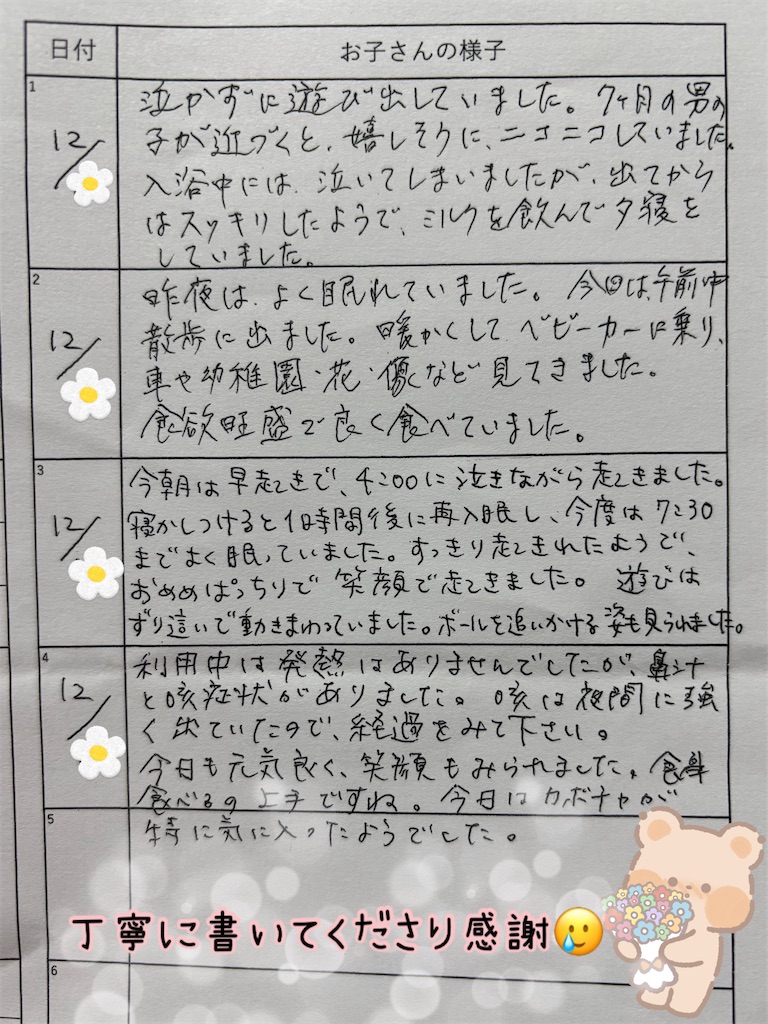 日付 お子さんの様子
1
12/
泣かずに遊び出していました。7ヶ月の男の
子が近づくと、嬉しそうに、ニコニコしていました。
入浴中には、泣いてしまいましたが、出てから
はスッキリしたようで、ミルクを飲んで夕寝を
していました。
2
12/
昨夜は、よく眠れていました。今回は、午前中
散歩に出ました。暖かくして、ベビーカーに乗り、
車や幼稚園・花・像など見てきました。
食欲旺盛で良く食べていました。
3
12/
今朝は早起きで、4:00に泣きながら起きました。
寝かしつけると1時間後に再入眠し、今度は7:30
までよく眠っていました。すっきり起きれたようで、
おめめぱっちりで笑顔で起きました。遊びは
ずり這いで動きまわっていました。ボールを追いかける姿も見られました。
4
12/
利用中は発熱はありませんでしたが、鼻汁
と咳症状がありました。咳は夜間に強
く出ていたので、経過をみて下さい。
今日も元気良く、笑顔もみられました。食事
食べるの上手ですね。今日はカボチャが
5
特に気に入ったようでした。
丁寧に書いてくださり感謝🥲
6